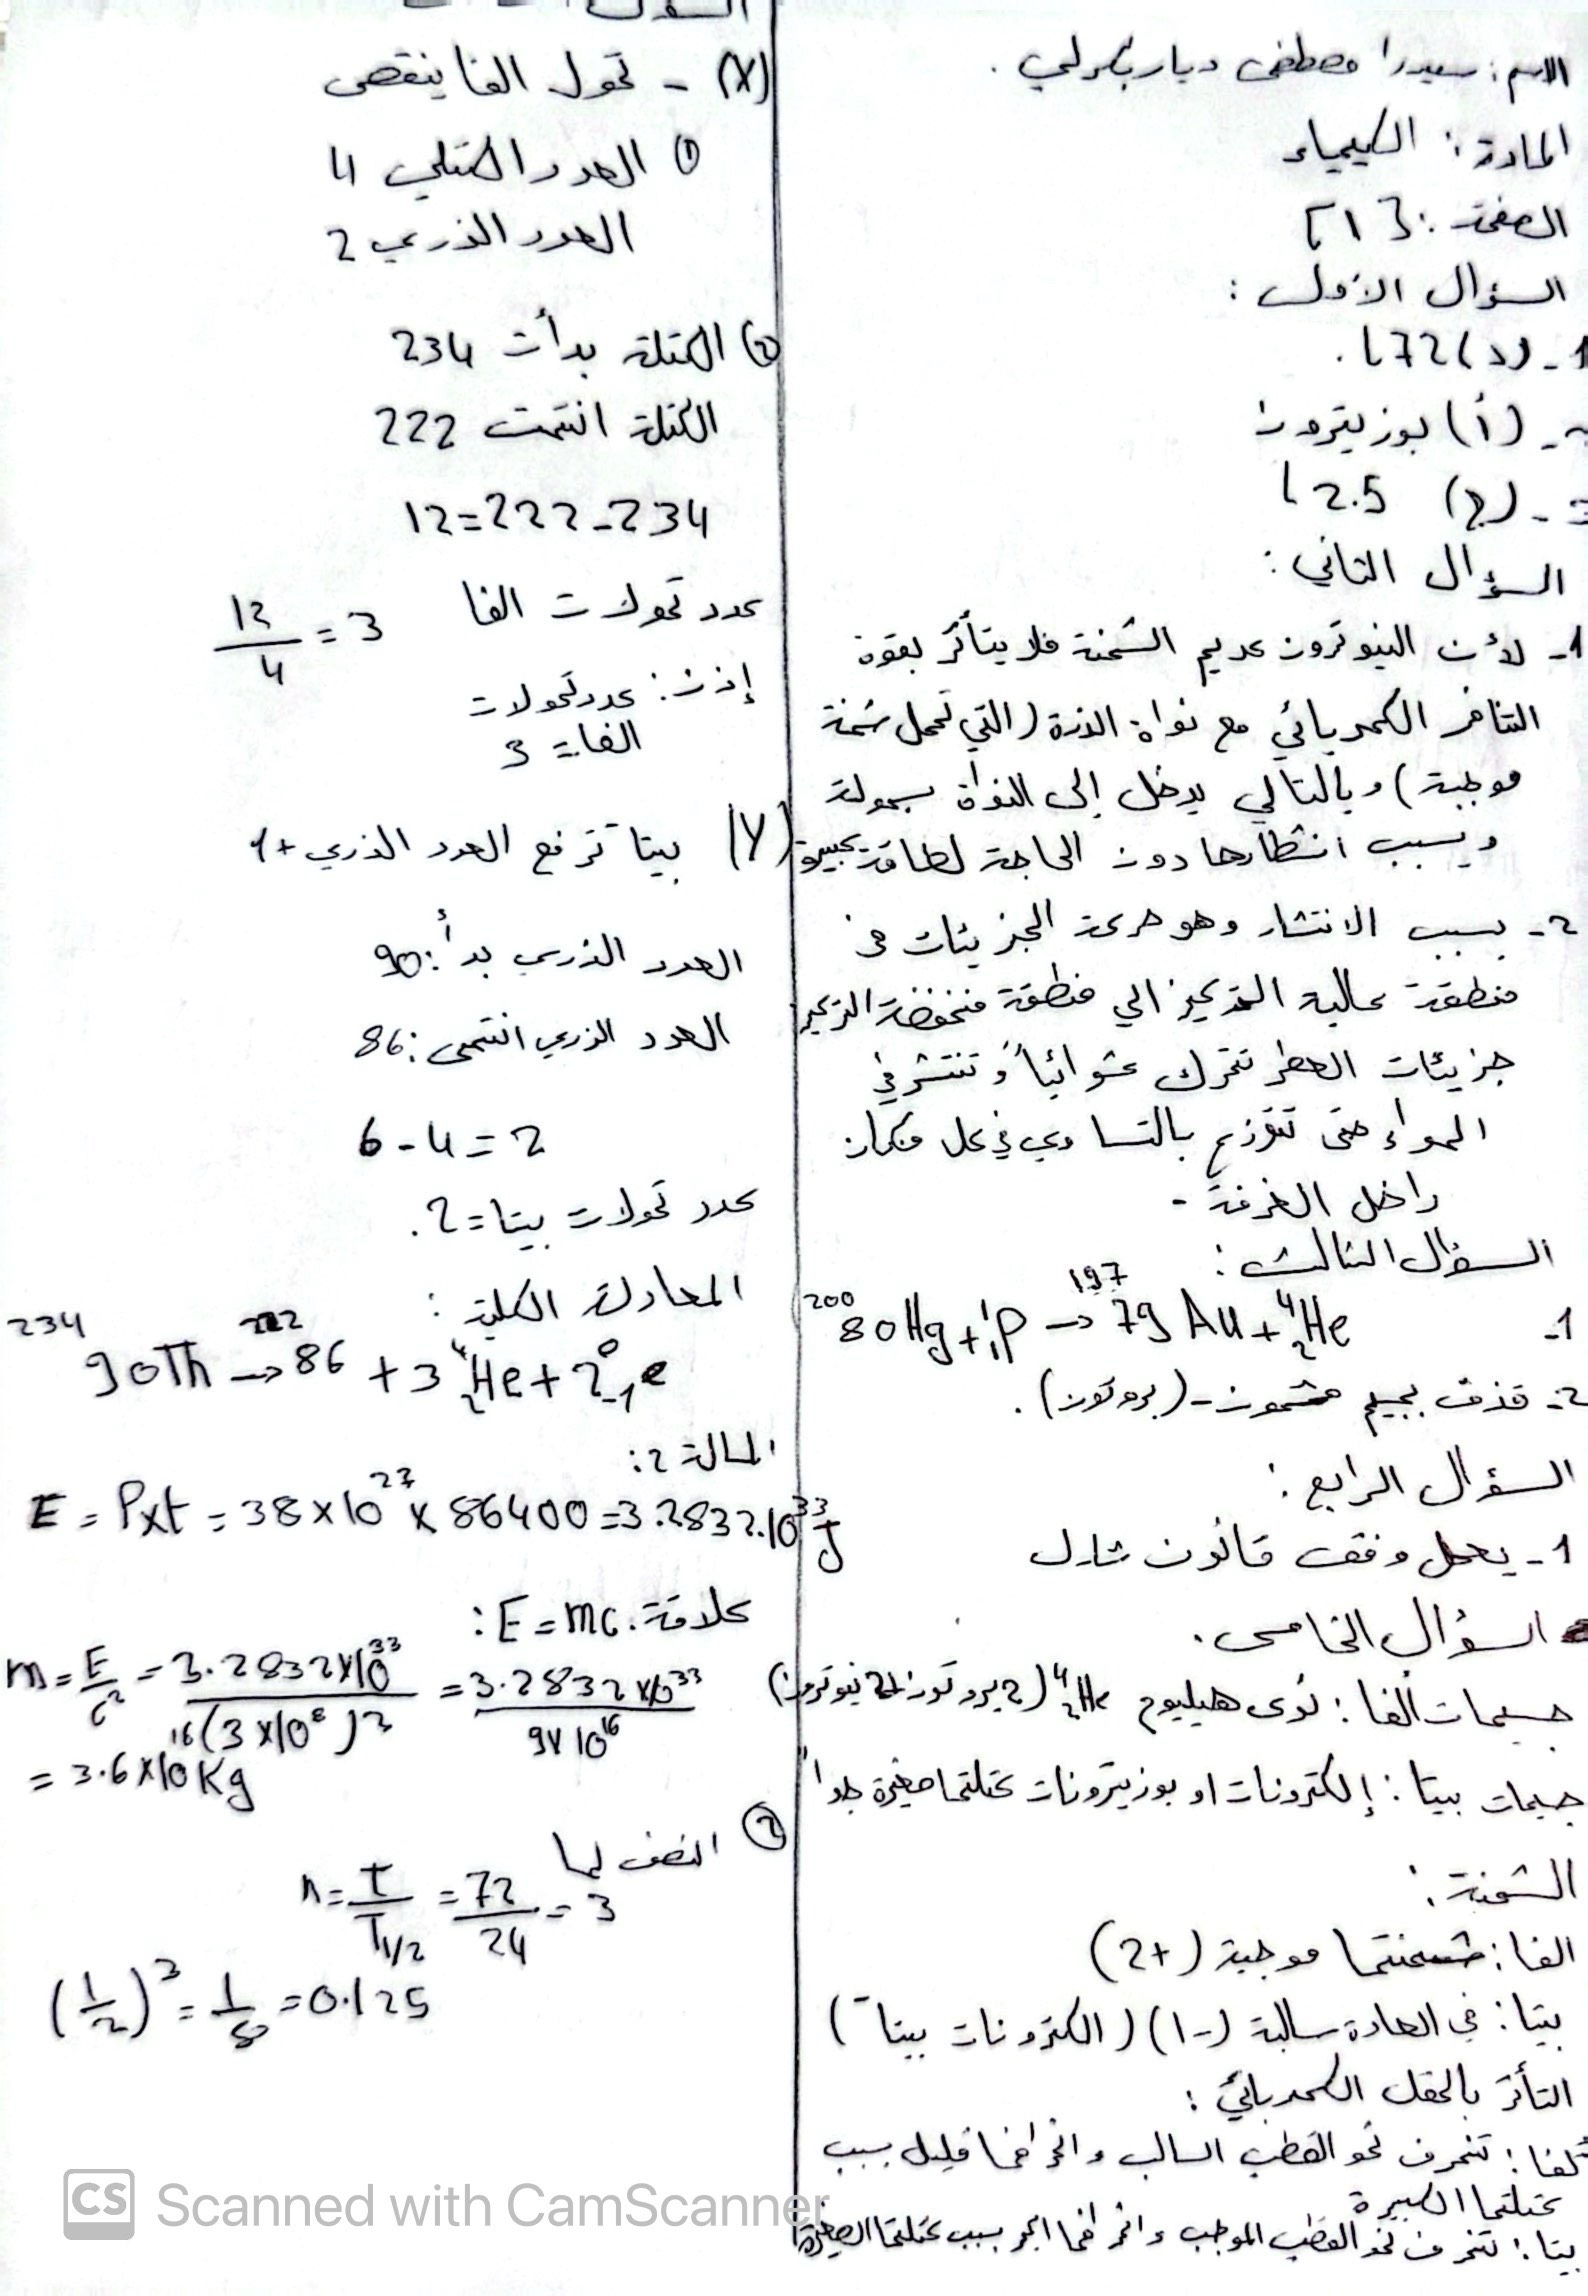 الاسم: سيدرا مصطفى ديار بكرلي.
المادة: الكيمياء
الصفحة: {1}
السؤال الأول:
1- (د) 72 L.
(أ) بوزيترون
(ج) 2.5 L
السؤال الثاني:
1- لأن النيوترون عديم الشحنة فلا يتأثر بقوة
التنافر الكهربائي مع نواة الذرة (التي تحمل شحنة
موجبة) وبالتالي يدخل إلى النواة بسهولة
ويسبب انشطارها دون الحاجة لطاقة كبيرة
2- بسبب الانتشار وهو حركة الجزيئات من
منطقة عالية التركيز الى منطقة منخفضة التركيز
جزيئات العطر تتحرك عشوائياً و تنتشر في
الهواء حتى تتوزع بالتساوي في كل مكان
داخل الغرفة -
السؤال الثالث:
1- ²⁰⁰80Hg + ¹₁P → ¹⁹⁷79 Au + ⁴₂He
2- قذف بجسيم مشحون - (بروتون).
السؤال الرابع:
1- يعمل وفق قانون شارل
السؤال الخامس.
جسيمات ألفا: نوى هيليوم ⁴₂He (2 بروتون 2 نيوترون)
جسيمات بيتا: إلكترونات او بوزيترونات كتلتها صغيرة جداً
الشحنة:
الفا: شحنتها موجبة (+2)
بيتا: في العادة سالبة (-1) (الكترونات بيتا⁻)
التأثر بالحقل الكهربائي:
ألفا: تنحرف نحو القطب السالب و انحرافها قليل بسبب
كتلتها الكبيرة
بيتا: تنحرف نحو القطب الموجب و انحرافها اكبر بسبب كتلتها الصغيرة
السؤال
(X) - تحول الفا ينقص
① العدد الكتلي 4
العدد الذري 2
② الكتلة بدأت 234
الكتلة انتهت 222
234-222=12
عدد تحولات الفا 12/4 = 3
إذن: عدد تحولات
الفا = 3
(Y) بيتا ترفع العدد الذري +1
العدد الذري بدأ: 90
العدد الذري انتهى: 86
6 - 4 = 2
عدد تحولات بيتا = 2.
المعادلة الكلية:
²³⁴90Th → ²²²86 + 3 ⁴₂He + 2 ⁰₋₁e
المسالة 2:
E = Pxt = 38 × 10²⁷ × 86400 = 3.2832.10³³ J
علاقة. E = mc:
m = E/c² = 3.2832×10³³/(3×10⁸)² = 3.2832×10³³/9×10¹⁶
= 3.6×10¹⁶ Kg
② النصف لها
n = t/T1/2 = 72/24 = 3
(1/2)³ = 1/8 = 0.125
CS Scanned with CamScanner